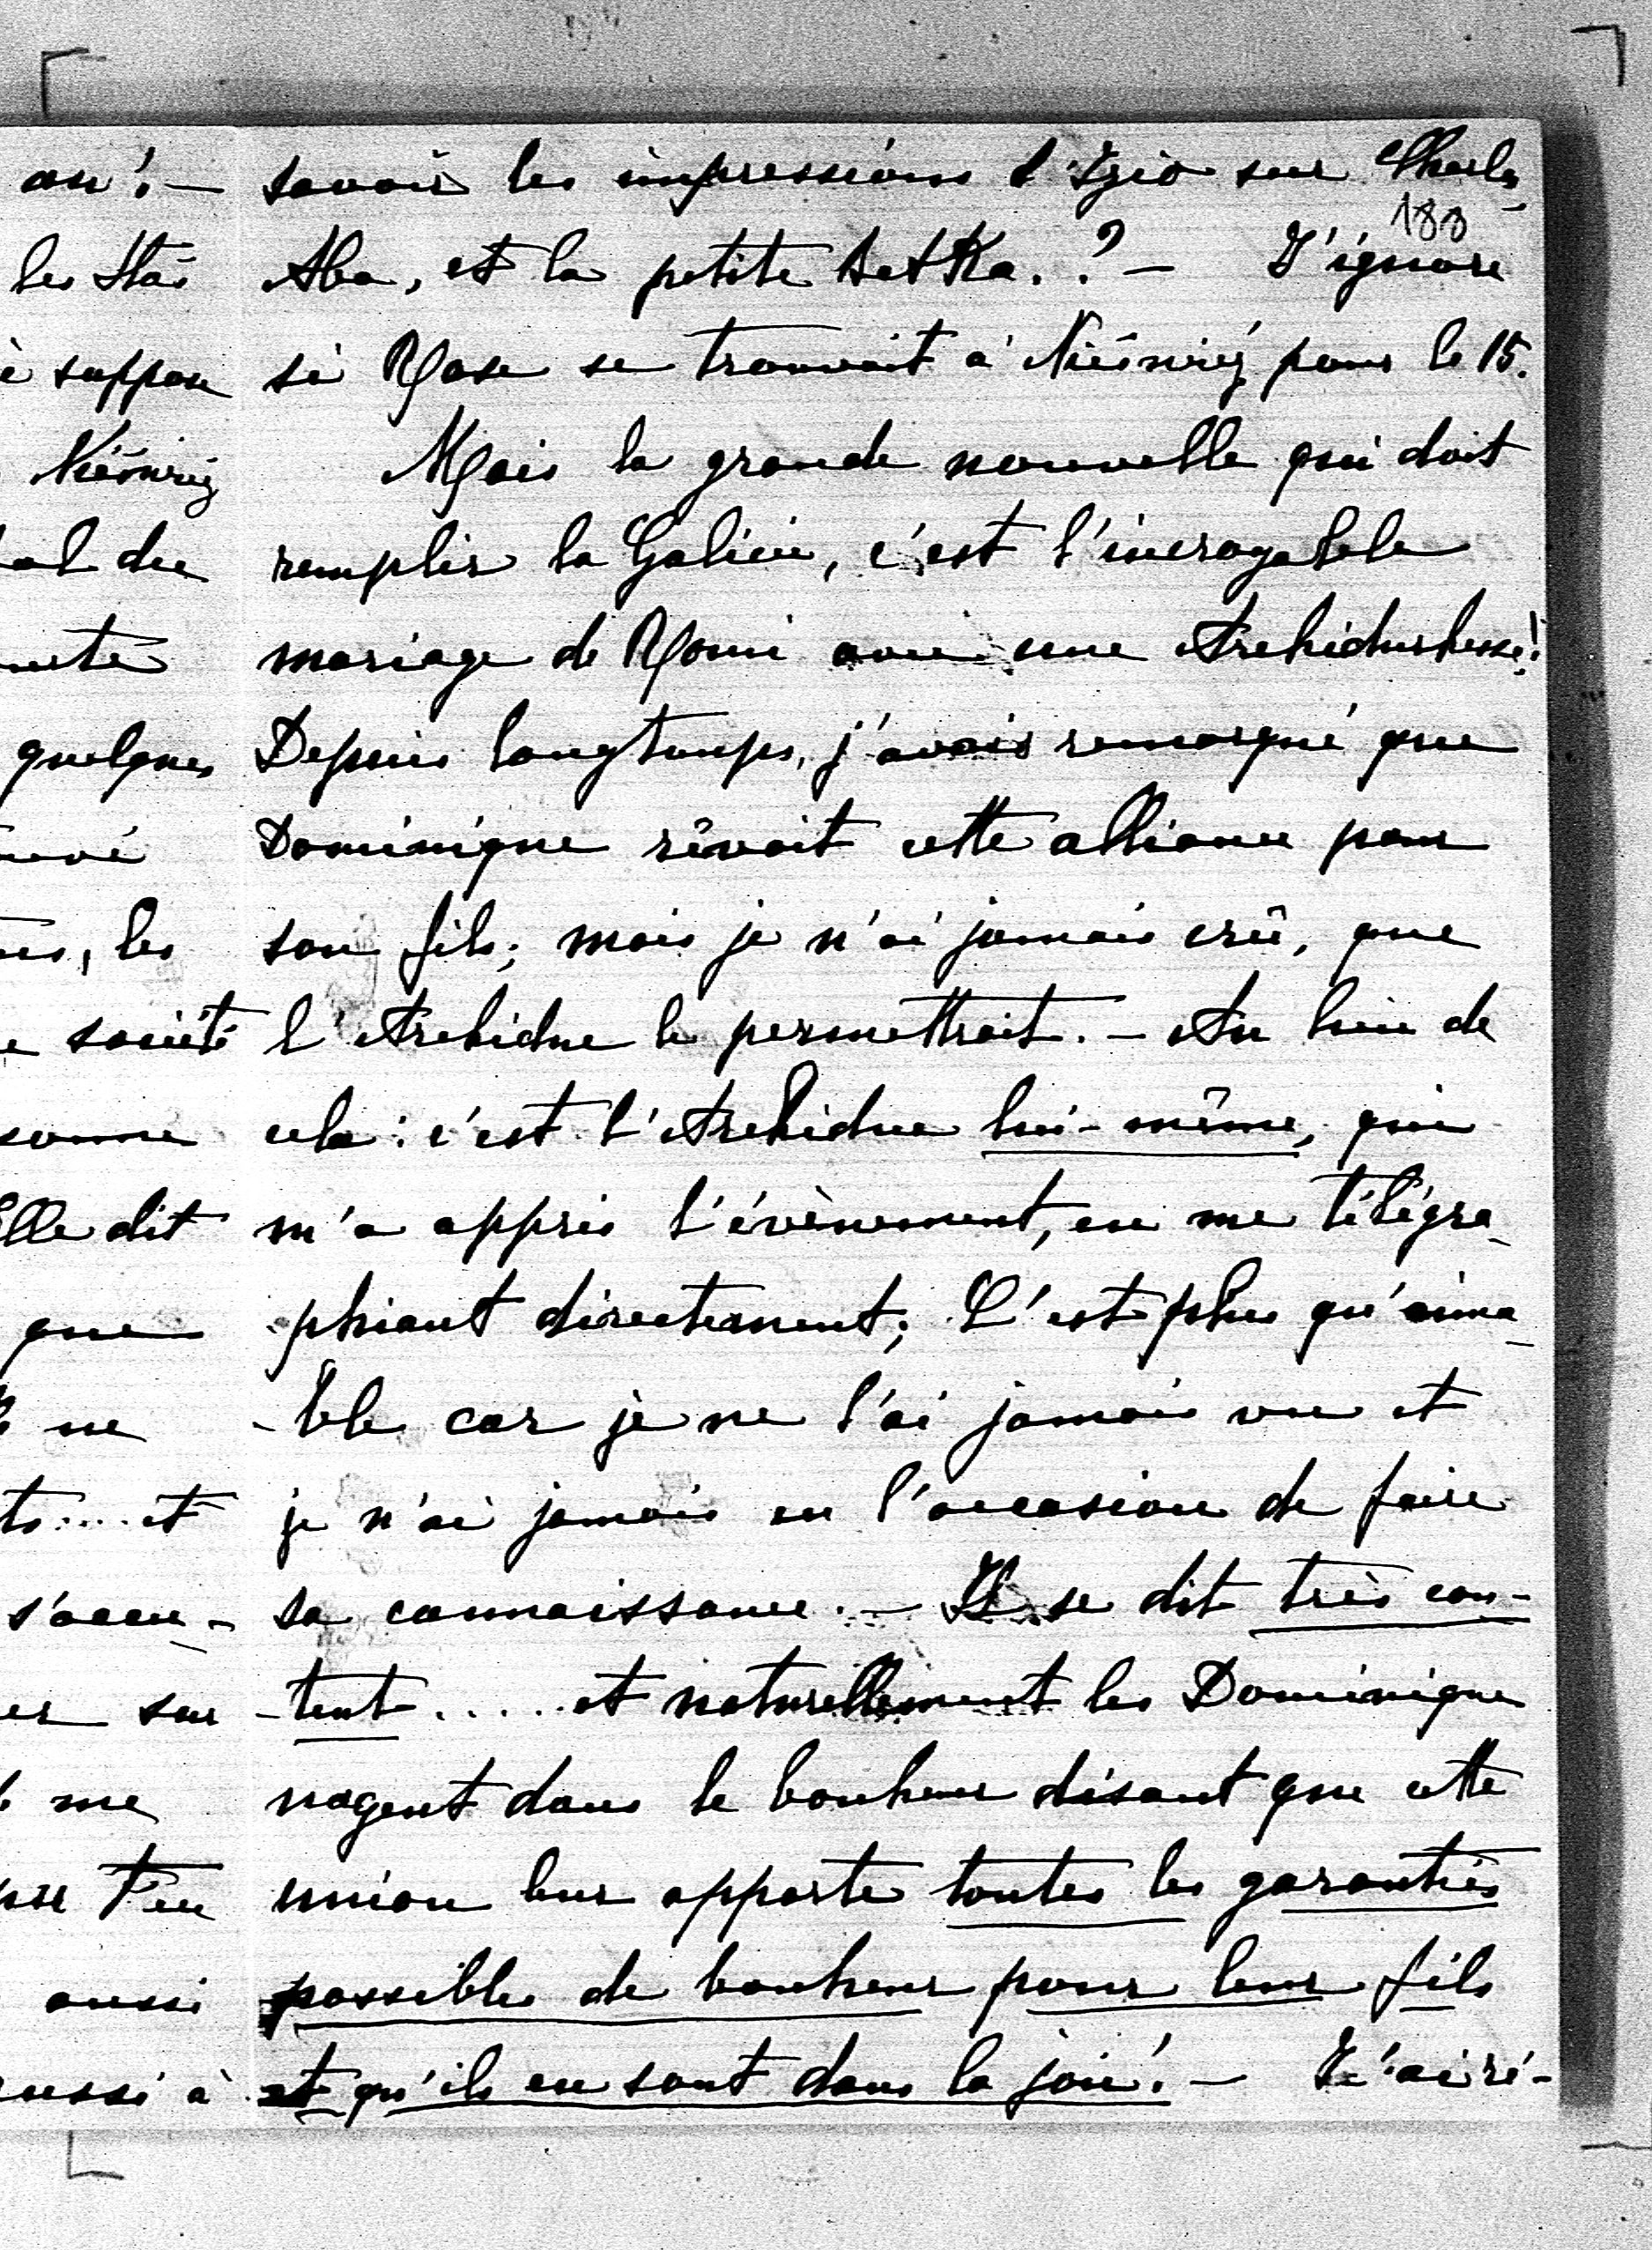 savoir les impressions d'Izio sur Charles
183
Aba, et la petite Betka.? — J'ignore
si Rose se trouvait à Niéswiéz pour le 15.
Mais la grande nouvelle qui doit
remplir la Galicie, c'est l'incroyable
mariage de avec une Archiduchesse!
Depuis longtemps, j'avais remarqué que
Dominique rêvait cette alliance pour
son fils; mais je n'ai jamais crû, que
l'Archiduc le permettrait. — Au lieu de
cela: c'est l'Archiduc lui-même, qui
m'a appris l'évènement, en me télégra-
phiant directement; C'est plus qu'aima-
-ble car je ne l'ai jamais vu et
je n'ai jamais eu l'occasion de faire
sa connaissance. — Il se dit très con-
-tent..... et naturellement les Dominique
nagent dans le bonheur disant que cette
union leur apporte toutes les garanties
possibles de bonheur pour leur fils
et qu'ils en sont dans la joie! — J'ai ré-
an! —
les Stas
suppose
Niéswiéz
al du
quelques
les
société
Elle dit
que
ne
et
s'occu-
sur
me
Feu
aussi
aussi à